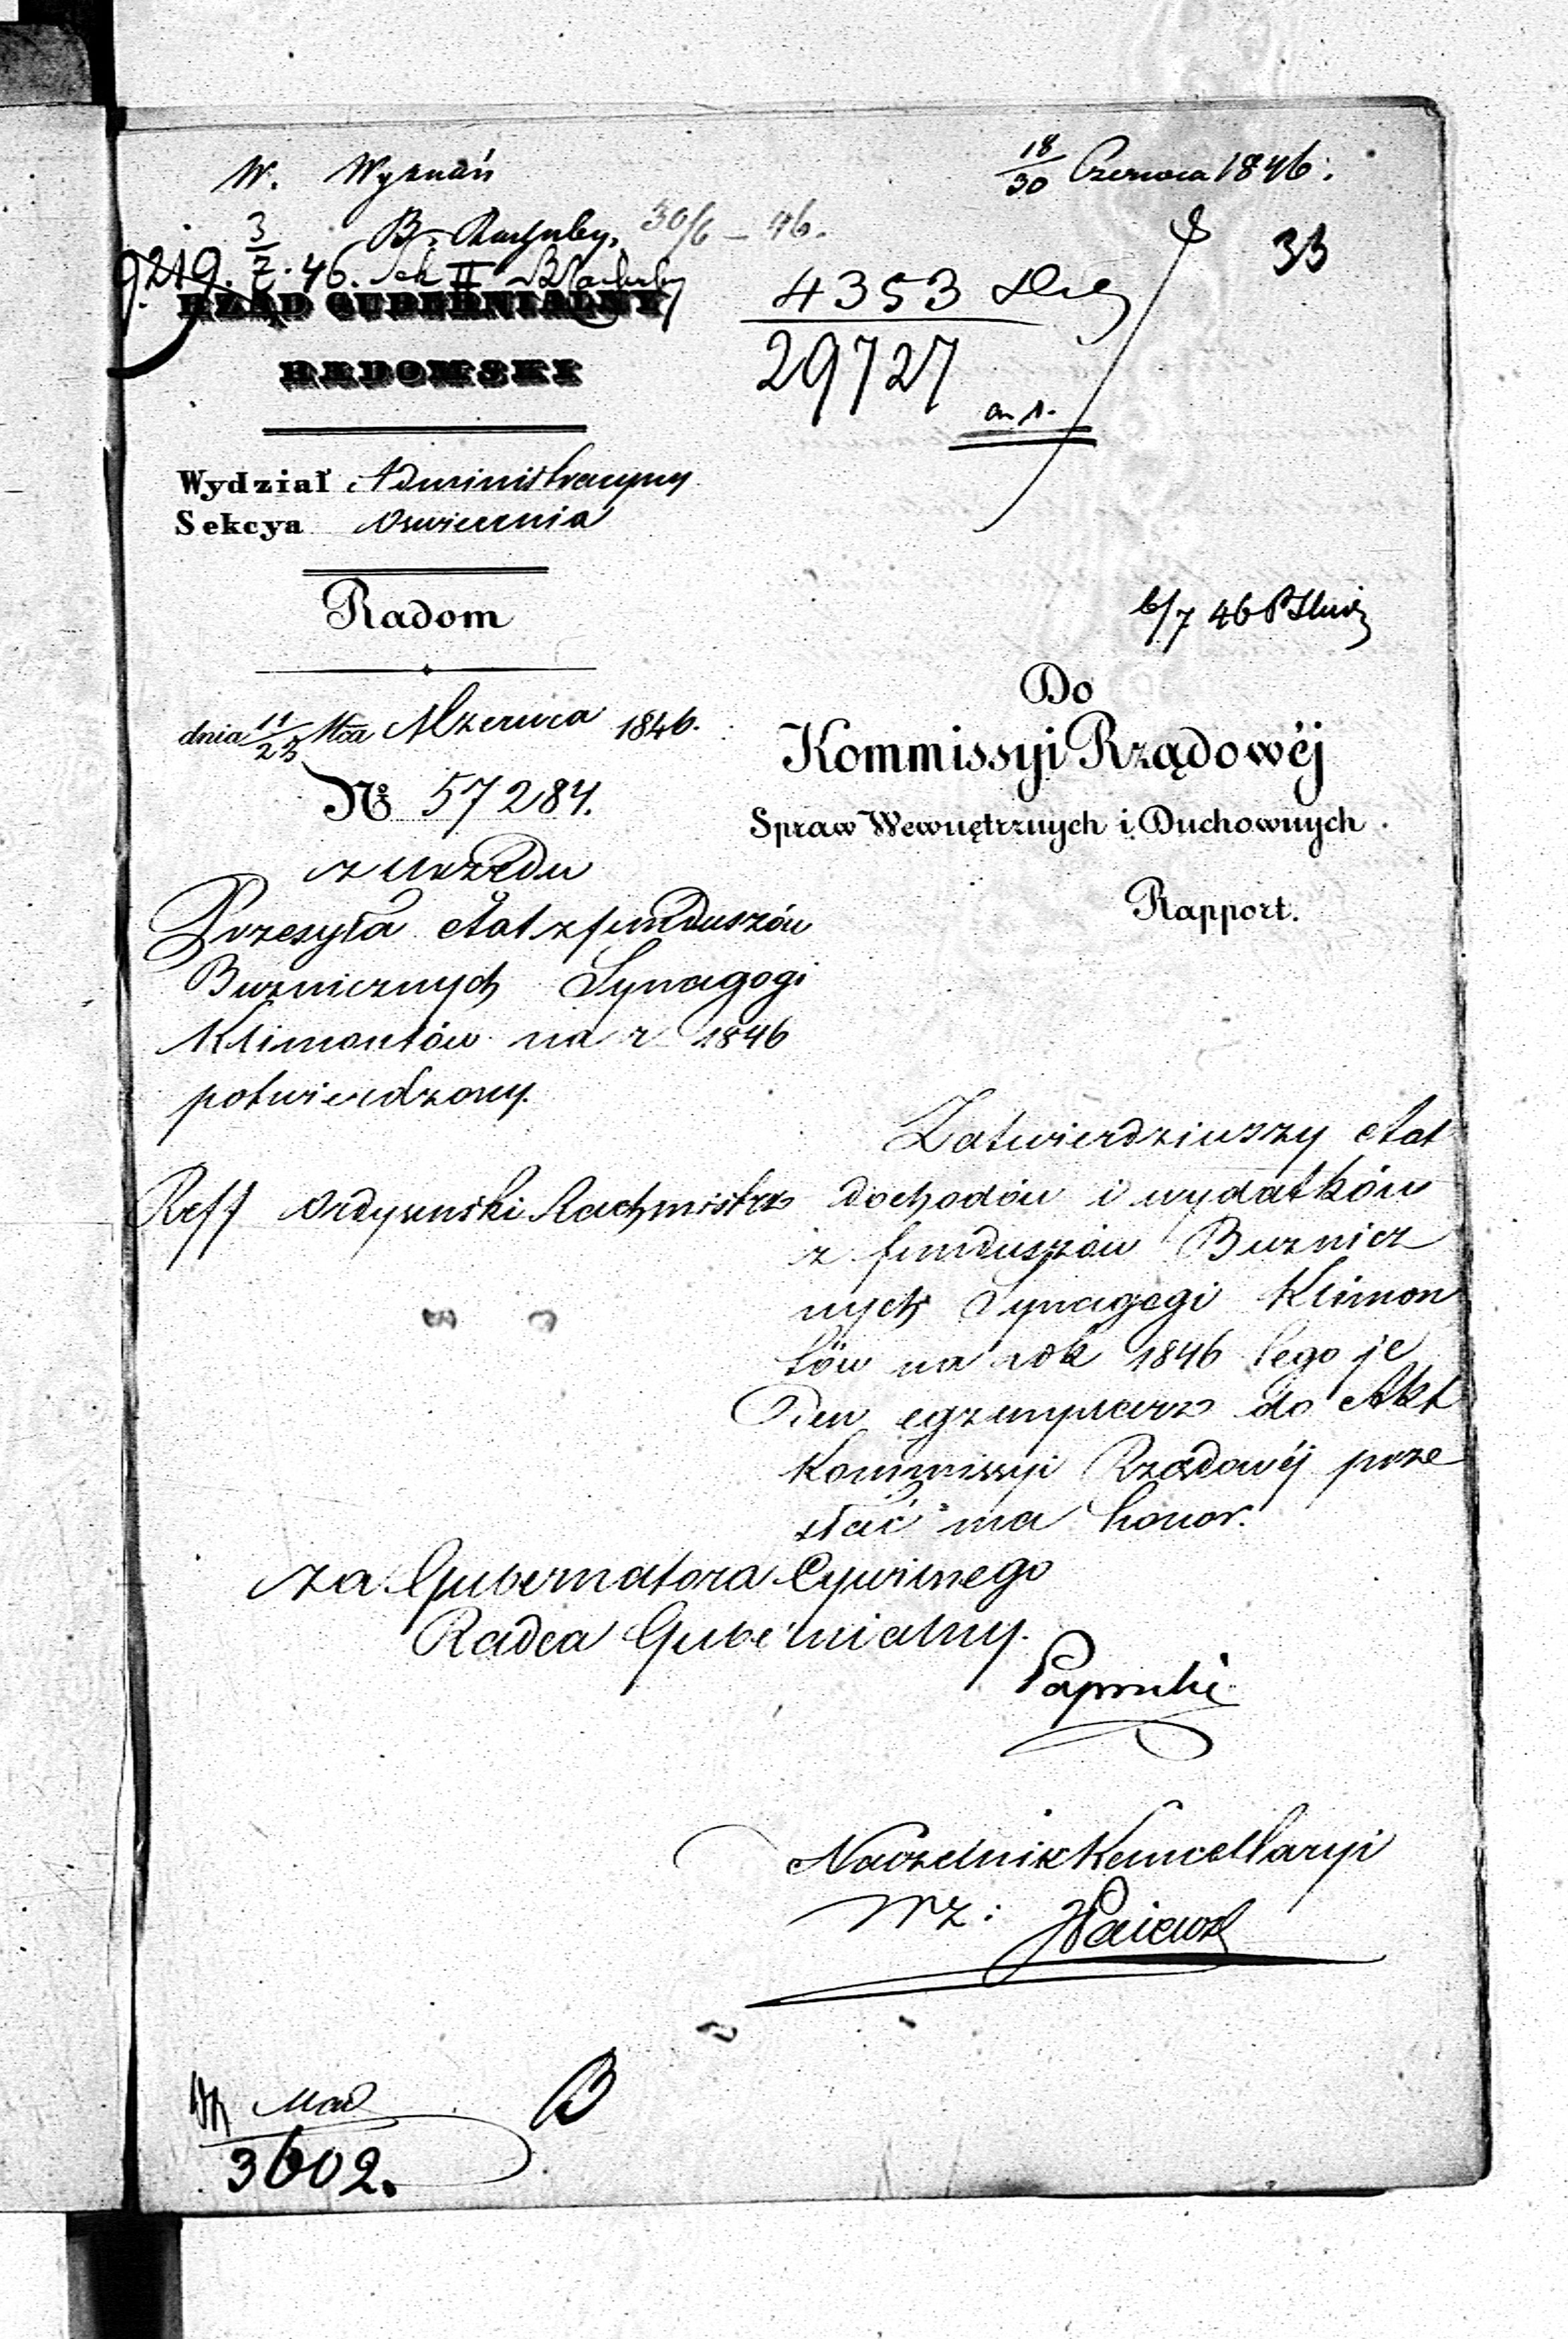 W. Wyznań
18/30 Czerwca 1846.
33
B. Rachuby, 30/6 – 46.
9219. 3/7. 46. Sek II B Rachuby
4353
29727
RZĄD GUBERNIALNY
RADOMSKI
Wydział Administracyjny
Sekcya Oswiecenia
Radom
6/7 46
dnia 11/23 Mca Czerwca 1846.
No 57284.
z Urzędu
Przesyła etat z funduszów
Bużnicznych Synagogi
Klimontów na r 1846
potwierdzony.
Reff Ordyński Rachmistrz
Do
Kommissyi Rządowéj
Spraw Wewnętrznych i Duchownych
Rapport.
Zatwierdziwszy etat
dochodów i wydatków
z funduszów Bużnicz
nych Synagogi Klimon
tów na rok 1846 tego je
den egzemplarz do Akt
Kommissyi Rządowéj prze
słać ma honor.
za Gubernatora Cywilnego
Radca Gubernialny.
Paprocki
Naczelnik Kancellaryi
wz:
B
3602.